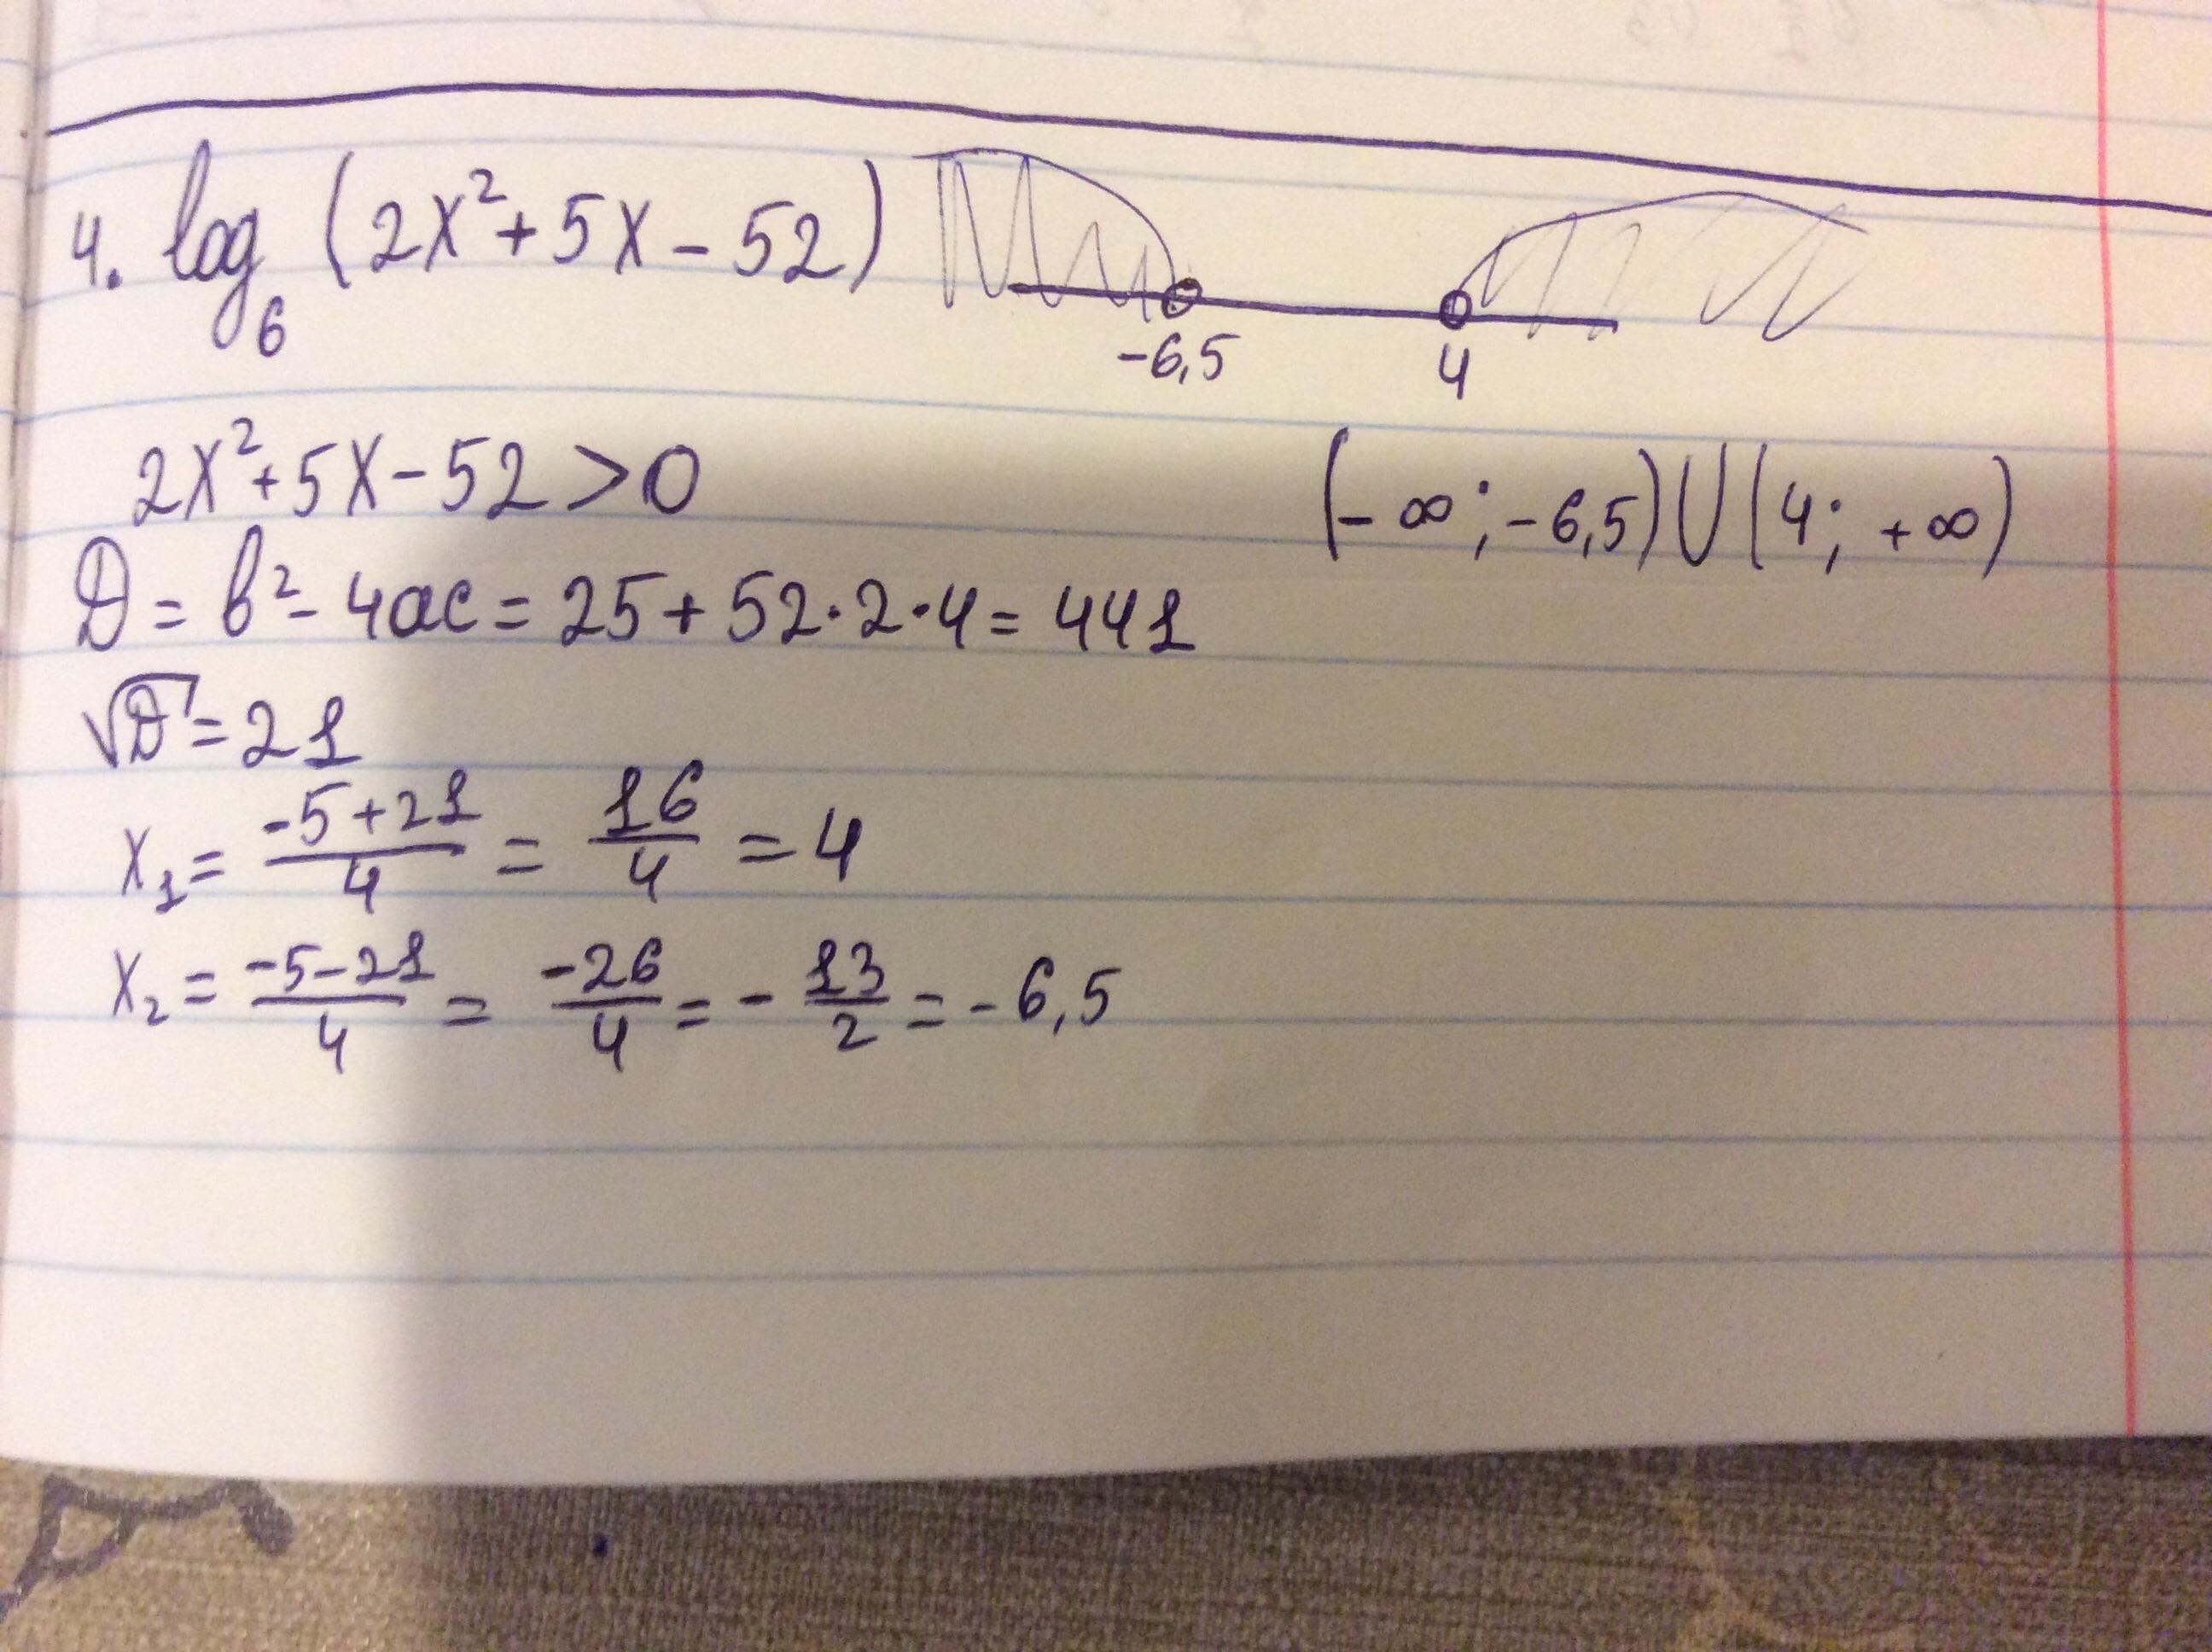 4. log₆ (2x² + 5x - 52)
-6,5 4
2x² + 5x - 52 > 0
(-∞; -6,5) ∪ (4; +∞)
D = b² - 4ac = 25 + 52·2·4 = 441
√D = 21
x₁ = (-5+21)/4 = 16/4 = 4
x₂ = (-5-21)/4 = -26/4 = -13/2 = -6,5